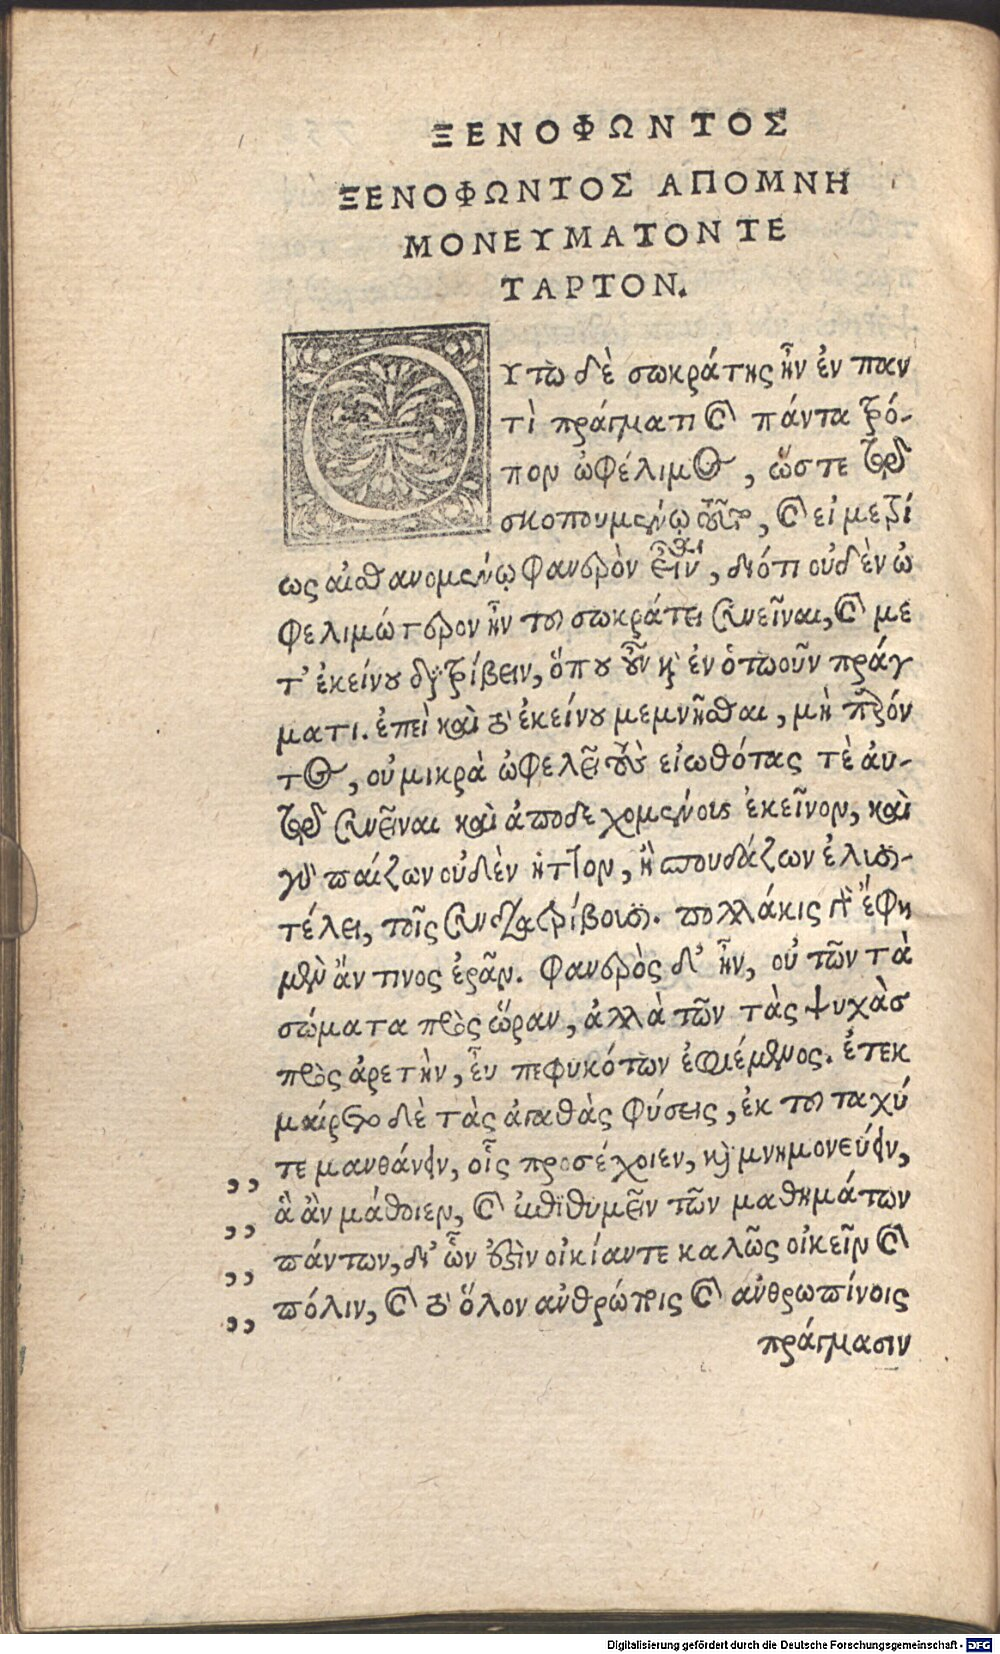 ΞΕΝΟΦΩΝΤΟΣ
ΞΕΝΟΦΩΝΤΟΣ ΑΠΟΜΝΗ
ΜΟΝΕΥΜΑΤΟΝ ΤΕ
ΤΑΡΤΟΝ.
ΟΥτω δὲ σωκράτης ἦν ἐν παν
τὶ πράγματι καὶ πάντα τρό-
πον ὠφέλιμος, ὥστε τῷ
σκοπουμένῳ τοῦτο, καὶ εἰ μετρί
ως αἰσθανομένῳ φανερὸν εἶναι, διότι οὐδὲν ὠ
φελιμώτερον ἦν τοῦ σωκράτει συνεῖναι, καὶ με
τ' ἐκείνου διατρίβειν, ὅπου οὖν καὶ ἐν ὁτωοῦν πράγ
ματι. ἐπεὶ καὶ τὸ ἐκείνου μεμνῆσθαι, μὴ παρόν
τος, οὐ μικρὰ ὠφελεῖ τοὺς εἰωθότας τὲ αὐ-
τῷ συνεῖναι καὶ ἀποδεχομένοις ἐκεῖνον, καὶ
γὰρ παίζων οὐδὲν ἧττον, ἢ σπουδάζων ἐλυσι-
τέλει, τοῖς συνδιατρίβουσι. πολλάκις γὰρ ἔφη
μὲν ἄν τινος ἐρᾶν. φανερὸς δ' ἦν, οὐ τῶν τὰ
σώματα πρὸς ὥραν, ἀλλὰ τῶν τὰς ψυχὰς
πρὸς ἀρετὴν, εὖ πεφυκότων ἐφιέμενος. ἐτεκ
μαίρετο δὲ τὰς ἀγαθὰς φύσεις, ἐκ τοῦ ταχύ
,, τε μανθάνειν, οἷς προσέχοιεν, καὶ μνημονεύειν,
,, ἃ ἂν μάθοιεν, καὶ ἐπιθυμεῖν τῶν μαθημάτων
,, πάντων, δι' ὧν ἔστιν οἰκίαντε καλῶς οἰκεῖν καὶ
,, πόλιν, καὶ τὸ ὅλον ἀνθρώποις καὶ ἀνθρωπίνοις
πράγμασιν
Digitalisierung gefördert durch die Deutsche Forschungsgemeinschaft - DFG